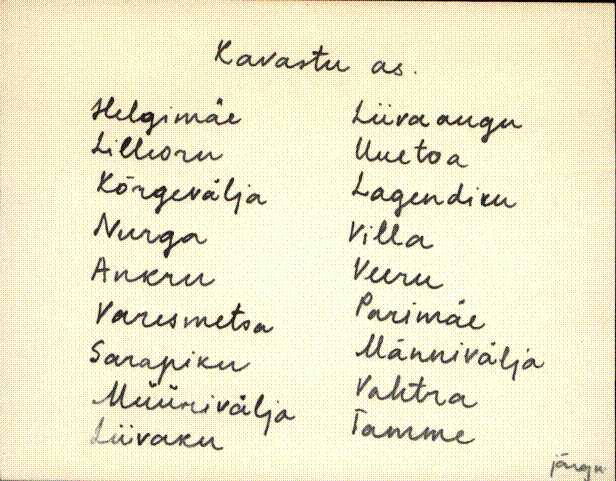 Kavastu as.
Helgimäe
Lilleoru
Kõrgevälja
Nurga
Ankru
Varesmetsa
Sarapiku
Müürivälja
Liivaku
Liivaaugu
Uuetoa
Lagendiku
Villa
Veeru
Parimäe
Männivälja
Vahtra
Tamme
järgn